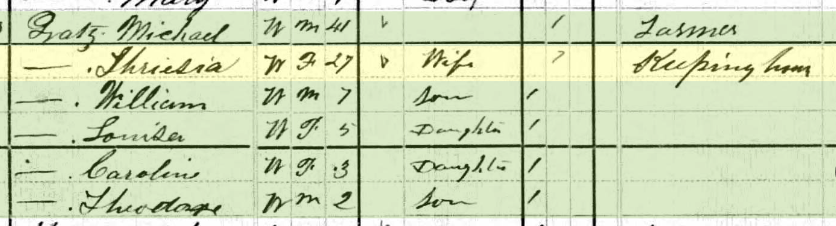 Mary
Gratz Michael W M 41 1 Farmer
— . Thriesia W F 27 Wife 7 Keeping hous
— . William W M 7 Son 1
— . Louisa W F 5 Daughter 1
— . Caroline W F 3 Daughter 1
— . Theodore W M 2 Son 1